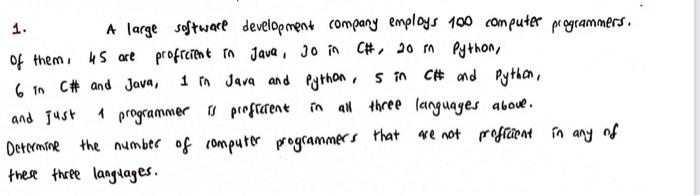 1. A large software development company employs 100 computer programmers.
Of them, 45 are proficient in Java, 30 in C#, 20 in Python,
6 in C# and Java, 1 in Java and Python, 5 in C# and Python,
and just 1 programmer is proficient in all three languages above.
Determine the number of computer programmers that are not proficient in any of
these three languages.